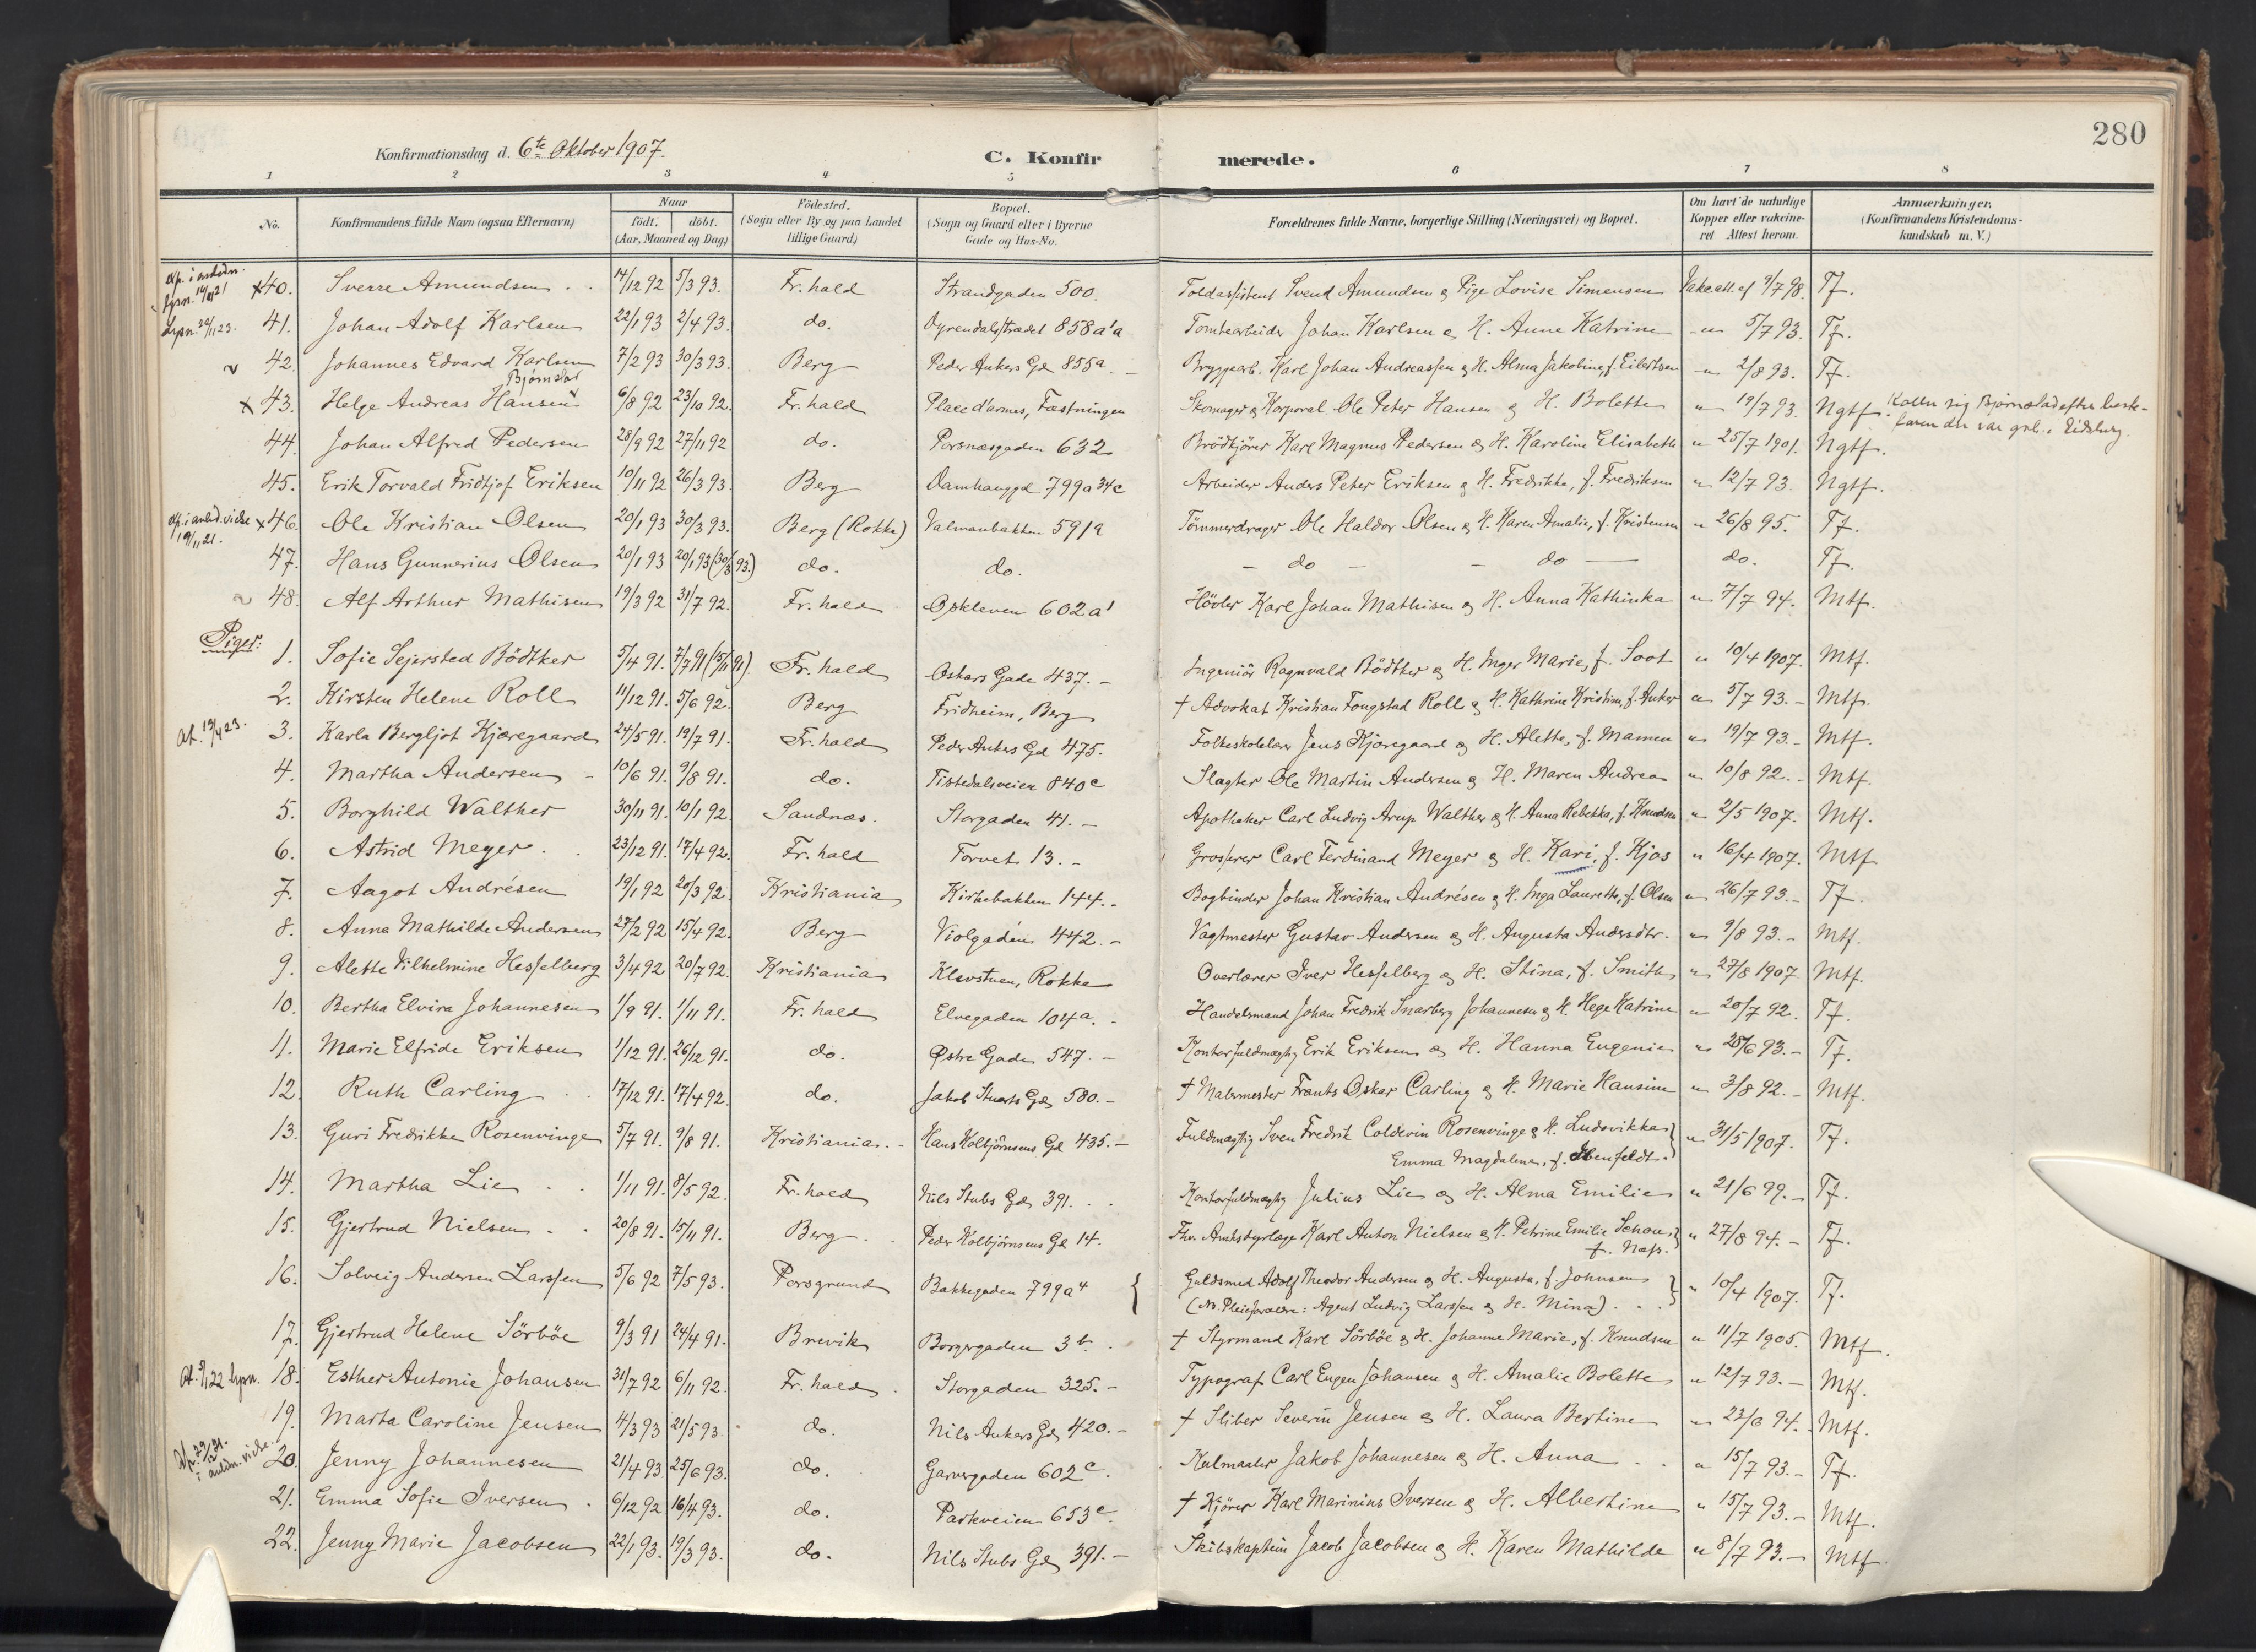 280
Konfirmationsdag d. 6te Oktober 1907.
C. Konfirmerede.
1 2 3 4 5 6 7 8
No. Konfirmandens fulde Navn (ogsaa Efternavn) Naar født. døbt. (Aar, Maaned og Dag) Fødested. (Sogn eller By og paa Landet tillige Gaard) Bopæl. (Sogn og Gaard eller i Byerne Gade og Hus-No. Forældrenes fulde Navne, borgerlige Stilling (Næringsvei) og Bopæl. Om havt de naturlige Kopper eller vakcineret Attest herom. Anmærkninger. (Konfirmandens Kristendomskundskab m. V.)
x 40. Sverre Amundsen 14/12 92 5/3 93. Fr.hald Strandgaden 500. Toldassistent Svend Amundsen og Pige Lovise Simensen Vakc.att. af 9/7 98. Tf.
41. Johan Adolf Karlsen 22/1 93 2/4 93. do. Dyrendalstrædet 858a'a Tomtearbeider Johan Karlsen og H. Anne Katrine " 5/7 93. Tf.
42. Johannes Edvard Karlsen 7/2 93 30/3 93. Berg Peder Ankers Gd 855a. Bryggearb. Karl Johan Andreassen og H. Alma Jakobine, f. Eilertsen " 2/8 93. Tf.
Bjørnstad
x 43. Helge Andreas Hansen 6/8 92 23/10 92. Fr.hald Place d'armes, Fæstningen Skomager og Korporal Ole Peter Hansen og H. Bolette " 19/7 93. Ngtf. Kaller sig Bjørnstad efter bestefaren der var grb. i Eidsberg.
44. Johan Alfred Pedersen 28/9 92 27/11 92 do. Porsnæsgaden 632 Brödkjörer Karl Magnus Pedersen og H. Karoline Elisabeth " 25/7 1901. Ngtf.
45. Erik Torvald Fridtjof Eriksen 10/11 92 26/3 93. Berg Damhauggd 799a 34c Arbeider Anders Peter Eriksen og H. Fredrikke, f. Fredriksen " 12/7 93. Ngtf.
x 46. Ole Kristian Olsen 20/1 93 30/3 93. Berg (Rokke) Valmanbakken 591a Tömmerdrager Ole Haldor Olsen og H. Karen Amalie, f. Kristensen " 26/8 95. Tf.
47. Hans Gunnerius Olsen 20/1 93 20/1 93 (30/3 93.) do. do. do do do. Tf.
48. Alf Arthur Mathisen 19/3 92 31/7 92. Fr.hald Oskleven 602a' Hövler Karl Johan Mathisen og H. Anna Kathinka " 7/7 94. Mtf.
Piger:
1. Sofie Sejersted Bödtker 5/4 91. 7/7 91 (15/11 91). Fr.hald Oskars Gade 437. Ingeniör Ragnvald Bödtker og H. Inger Marie, f. Soot " 10/4 1907. Mtf.
2. Kirsten Helene Roll 11/12 91. 5/6 92. Berg Fridheim, Berg † Advokat Kristian Fougstad Roll og H. Kathrine Kristine, f. Anker " 5/7 93. Mtf.
At. 19/4 23. 3. Karla Bergljot Kjæregaard 24/5 91. 19/7 91. Fr.hald Peder Ankers Gd 475. Folkeskolelærer Jens Kjæregaard og H. Alette, f. Mamen " 19/7 93. Mtf.
4. Martha Andersen 10/6 91. 9/8 91. do. Tistedalsveien 840c Slagter Ole Martin Andersen og H. Maren Andrea " 10/8 92. Mtf.
5. Borghild Walther 30/11 91. 10/1 92. Sandnæs. Storgaden 41. Apotheker Carl Ludvig Arup Walther og H. Anna Rebekka, f. Knudsen " 2/5 1907. Mtf.
6. Astrid Meyer. 23/12 91. 17/4 92. Fr.hald Torvet 13. Grosserer Carl Ferdinand Meyer og H. Kari, f. Kjos " 16/4 1907. Mtf
7. Aagot Andrésen 19/1 92 20/3 92. Kristiania Kirkebakken 144. Bogbinder Johan Kristian Andrésen og H. Inga Laurette, f. Olsen " 26/7 93. Tf.
8. Anna Mathilde Andersen 27/2 92 15/4 92. Berg Violgaden 442. Vagtmester Gustav Andersen og H. Augusta Andersdtr. " 9/8 93. Mtf.
9. Alette Vilhelmine Hesselberg 3/4 92 20/7 92. Kristiania Klevstuen, Rokke Overlærer Iver Hesselberg og H. Stina, f. Smith " 27/8 1907 Mtf.
10. Bertha Elvira Johannesen 1/9 91. 1/11 91. Fr.hald Elvegaden 104a. Handelsmand Johan Fredrik Snarberg Johannesen og H. Hege Katrine " 20/7 92. Tf.
11. Marie Elfride Eriksen 1/12 91. 26/12 91. do. Østre Gade 547. Kontorfuldmægtig Erik Eriksen og H. Hanna Eugenie " 28/6 93. Tf.
12. Ruth Carling 17/12 91. 17/4 92. do. Jakob Stuarts Gd 580. † Malermester Frants Oskar Carling og H. Marie Hansine " 3/8 92. Mtf.
13. Guri Fredrikke Rosenvinge 5/7 91. 9/8 91. Kristiania. Hans Kolbjörnsens Gd 435. Fuldmægtig Sven Fredrik Coldevin Rosenvinge og H. Ludovikka Emma Magdalena, f. Ibenfeldt. " 31/5 1907. Tf.
14. Martha Lie 1/11 91. 8/5 92. Fr.hald Nils Stubs Gd 391. Kontorfuldmægtig Julius Lie og H. Alma Emilie " 21/6 99. Tf.
15. Gjertrud Nielsen 20/8 91. 15/11 91. Berg Peder Kolbjörnsens Gd 14. Fhv. Amtsdyrlæge Karl Anton Nielsen og H. Petrine Emilie Schou, f. Næss. " 27/8 94. Tf.
16. Solveig Andersen Larssen 5/6 92 7/5 93. Porsgrund Bakkegaden 799a4 Guldsmed Adolf Theodor Andersen og H. Augusta, f. Johnsen " 10/4 1907. Tf.
(Nb. Pleieforældre: Agent Ludvig Larssen og H. Mina)
17. Gjertrud Helene Sörböe 9/3 91 24/4 91. Brevik Borgergaden 3b. † Styrmand Karl Sörböe og H. Johanne Marie, f. Knudsen " 11/7 1905. Mtf.
18. Esther Antonie Johansen 31/7 92 6/11 92. Fr.hald Storgaden 325. Typograf Carl Eugen Johansen og H. Amalie Bolette " 12/7 93. Mtf.
19. Marta Caroline Jensen 4/3 93 21/5 93. do. Nils Ankers Gd 420. † Sliber Severin Jensen og H. Laura Bertine " 23/6 94. Mtf.
20. Jenny Johannesen 21/4 93. 25/6 93. do. Garvergaden 602c. Kulmaaler Jakob Johannesen og H. Anna " 15/7 93. Tf.
21. Emma Sofie Iversen 6/12 92 16/4 93. do. Parkveien 653c. † Kjörer Karl Marinius Iversen og H. Albertine " 15/7 93. Mtf.
22. Jenny Marie Jacobsen 22/1 93. 19/3 93. do. Nils Stubs Gd 391. Skibskaptein Jacob Jacobsen og H. Karen Mathilde " 8/7 93. Mtf